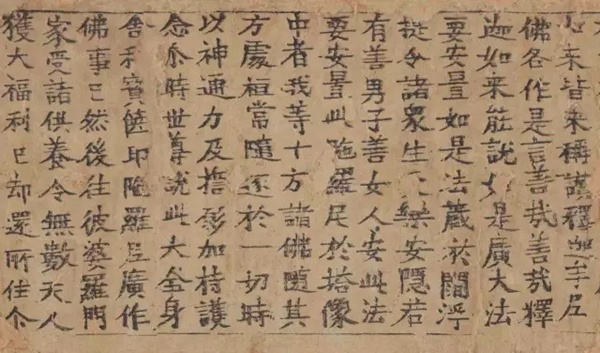 心来皆来稱讃釋迦牟尼
佛各作是言善哉善哉釋
迦如来能說如是廣大法
要安置如是法蔵於閻浮
提令諸衆生樂安隱若
有善男子善女人安此法
要安置此陁羅尼於塔像
中者我等十方諸佛隨其
方處恒常隨逐於一切時
以神通力及誓願加持護
念尒時世尊說此大全身
舎利寳篋印陁羅尼廣作
佛事已然後往彼婆羅門
家受諸供養令無數天人
獲大福利已却還所住尒